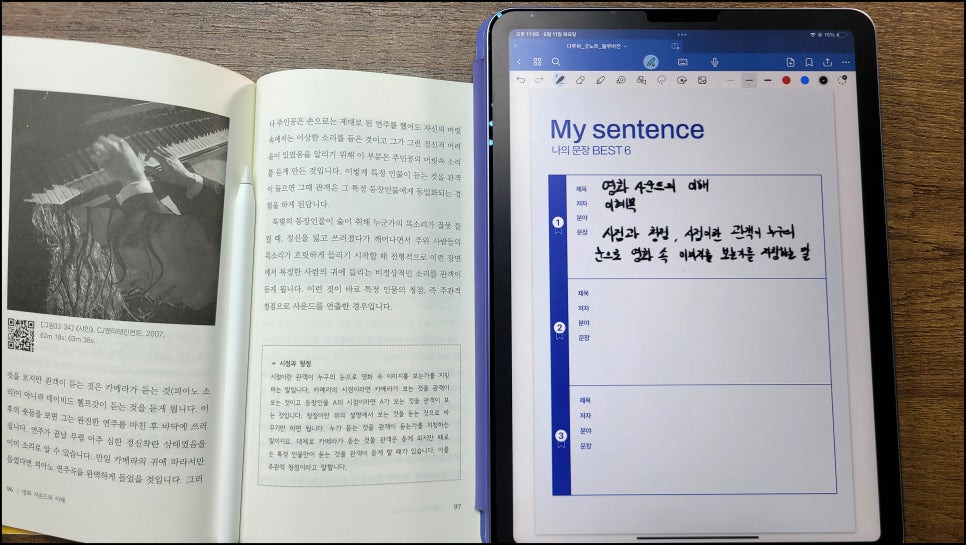 《그림33·34》 《샤인》, CJ엔터테인먼트, 2007.
62m 18s; 63m 38s.
것을 보지만 관객이 듣는 것은 카메라가 듣는 것(피아노 소
리)이 아니라 데이비드 헬프갓이 듣는 것을 듣게 됩니다. 이
후의 숏들을 보면 그는 완전한 연주를 마친 후 바닥에 쓰러
집니다. 연주가 끝날 무렵 아주 심한 정신착란 상태였음을
이미 소리로 알 수 있습니다. 만일 카메라의 귀에 따라서만
들었다면 피아노 연주곡을 완벽하게 들었을 것입니다. 그러
96 | 영화 사운드의 이해
나 주인공은 손으로는 제대로 된 연주를 했어도 자신의 머릿
속에서는 이상한 소리를 들은 것이고 그가 그런 정신적 어려
움이 있었음을 알리기 위해 이 부분은 주인공의 머릿속 소리
를 듣게 만든 것입니다. 이렇게 특정 인물이 듣는 것을 관객
이 들으면 그때 관객은 그 특정 등장인물에게 동일화되는 경
험을 하게 된답니다.
특별히 등장인물이 술이 취해 누군가의 목소리가 잘못 들
릴 때, 정신을 잃고 쓰러졌다가 깨어나면서 주위 사람들의
목소리가 흐릿하게 들리기 시작할 때 전형적으로 이런 장면
에서 특정한 사람의 귀에 들리는 비정상적인 소리를 관객이
듣게 됩니다. 이런 것이 바로 특정 인물의 청점, 즉 주관적
청점으로 사운드를 연출한 경우입니다.
☞ 시점과 청점
시점이란 관객이 누구의 눈으로 영화 속 이미지를 보는가를 지칭
하는 말입니다. 카메라의 시점이라면 카메라가 보는 것을 관객이
보는 것이고 등장인물 A의 시점이라면 A가 보는 것을 관객이 보
는 것입니다. 청점이란 위의 설명에서 보는 것을 듣는 것으로 바
꾸기만 하면 됩니다. 누가 듣는 것을 관객이 듣는가를 지칭하는
말이지요. 대체로 카메라가 듣는 것을 관객은 듣게 되지만 때로
는 특정 인물만이 듣는 것을 관객이 듣게 할 때가 있습니다. 이를
주관적 청점이라고 말합니다.
97
오후 11:05 6월 11일 화요일
15%
다루미_굿노트_블루버전
My sentence
나의 문장 BEST 6
1
제목 영화 사운드의 이해
저자 이혜복
분야
문장 시점과 청점, 시점이란 관객이 누구의
눈으로 영화 속 이미지를 보는가를 지칭하는 말
2
제목
저자
분야
문장
3
제목
저자
분야
문장